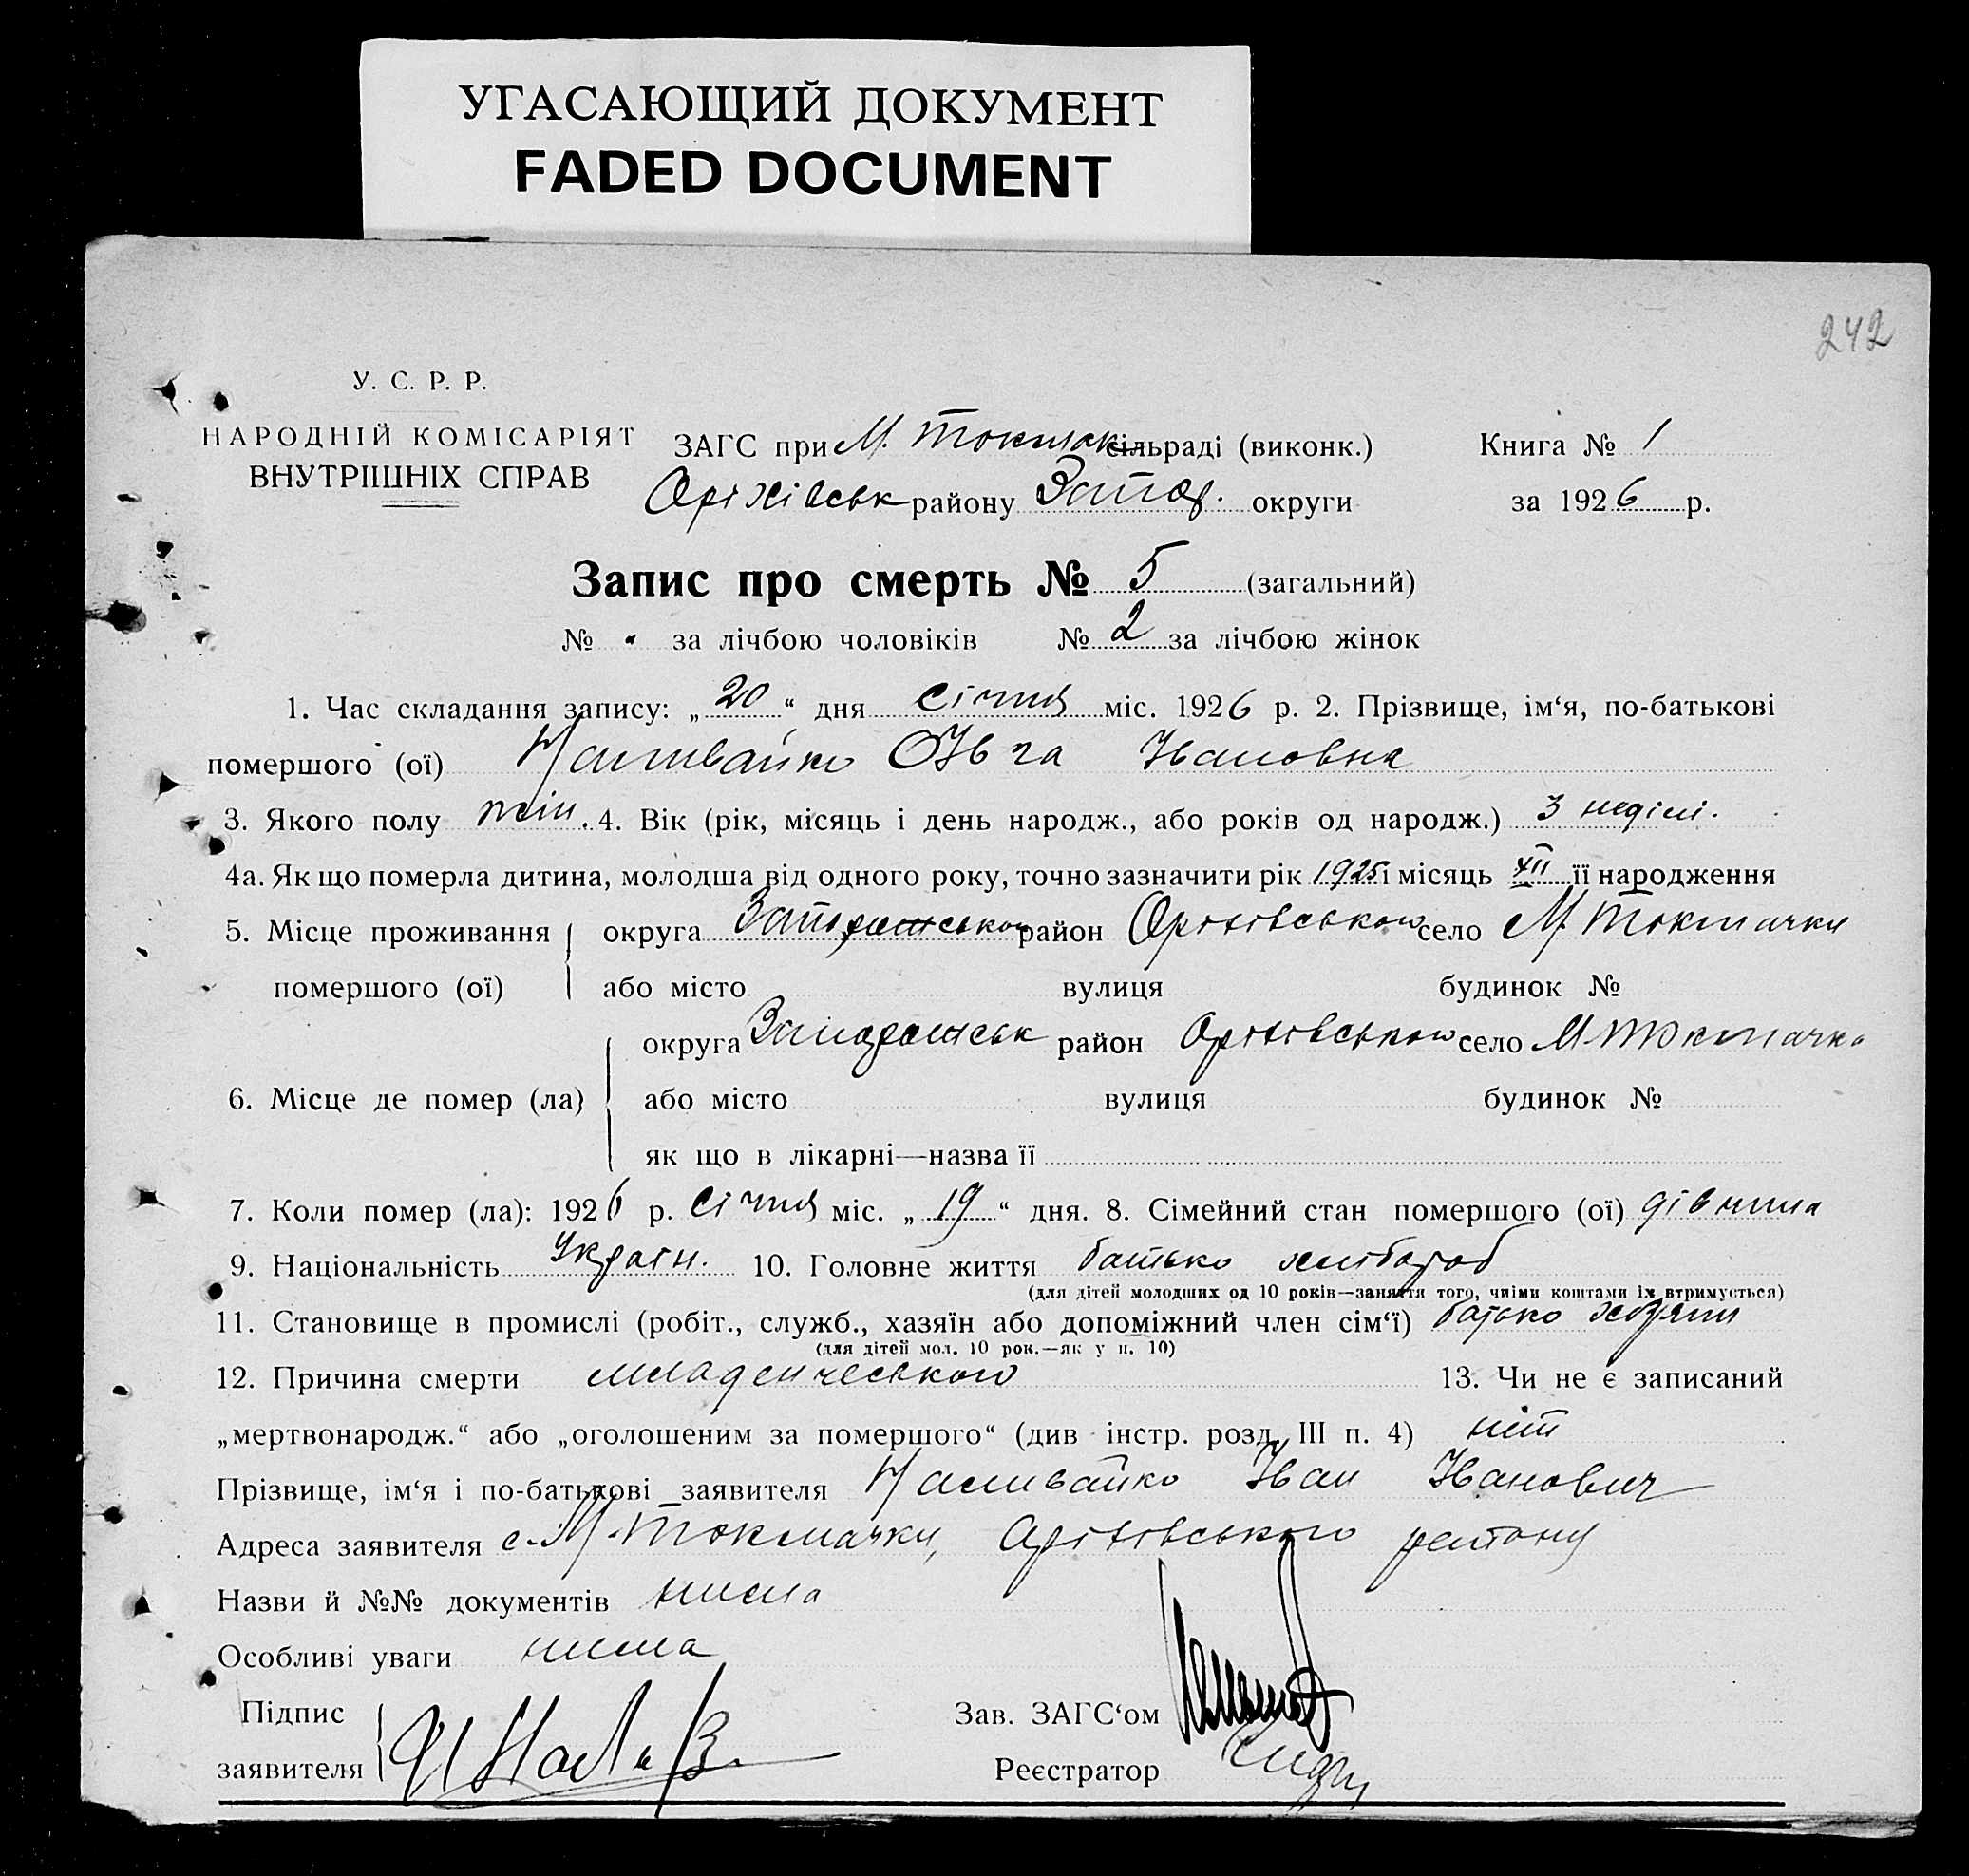 УГАСАЮЩИЙ ДОКУМЕНТ
FADED DOCUMENT
242
У. С. Р. Р.
НАРОДНІЙ КОМІСАРІЯТ
ВНУТРІШНІХ СПРАВ
ЗАГС при М. Токмак сільраді (виконк.)
Книга № 1
Оріхівськ району Запор. округи
за 1926 р.
Запис про смерть № 5 (загальний)
№ " за лічбою чоловіків № 2 за лічбою жінок
1. Час складання запису: „20“ дня січня міс. 1926 р. 2. Прізвище, ім‘я, по-батькові
помершого (ої) Наливайко Івановна
3. Якого полу жін. 4. Вік (рік, місяць і день народж., або років од народж.) 3 неділі.
4а. Як що померла дитина, молодша від одного року, точно зазначити рік 1925 і місяць XII її народження
5. Місце проживання округа район Оріхівського село М. Токмачки
помершого (ої) або місто вулиця будинок №
округа Запоріжськ район Оріхівського село М. Токмачка
6. Місце де помер (ла) або місто вулиця будинок №
як що в лікарні—назва її
7. Коли помер (ла): 1926 р. Січня міс. „19“ дня. 8. Сімейний стан помершого (ої) дівчина
9. Національність Україн. 10. Головне життя батько хлібороб
(для дітей молодших од 10 років—заняття того, чиїми коштами їх втримується)
11. Становище в промислі (робіт., служб., хазяїн або допоміжний член сім‘ї) батько хозяїн
(для дітей мол. 10 рок.—як у п. 10)
12. Причина смерти младенческого 13. Чи не є записаний
„мертвонародж.“ або „оголошеним за помершого“ (див інстр. розд. III п. 4) ніт
Прізвище, ім‘я і по-батькові заявителя Наливайко Іван Іванович
Адреса заявителя с. М-Токмачки, Оріхівського району
Назви й №№ документів нима
Особливі уваги нима
Підпис
Зав. ЗАГС‘ом
заявителя
Реєстратор